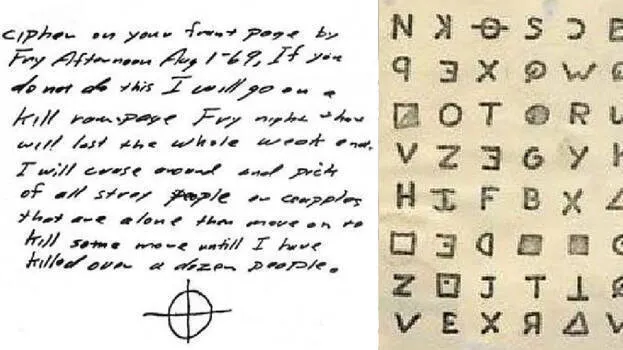 cipher on your front page by
Fry Afternoon Aug 1-69, If you
do not do this I will go on a
kill rampage Fry night that
will last the whole weak end.
I will cruse around and pick
of all stray people or coupples
that are alone then move on to
kill some more untill I have
killed over a dozen people.
N ꓘ S Ɔ
Ǝ X W
O T R
V Z Ǝ G Y
H F B X
Ǝ ᗡ
Z J T ⊥
V E X Я Δ